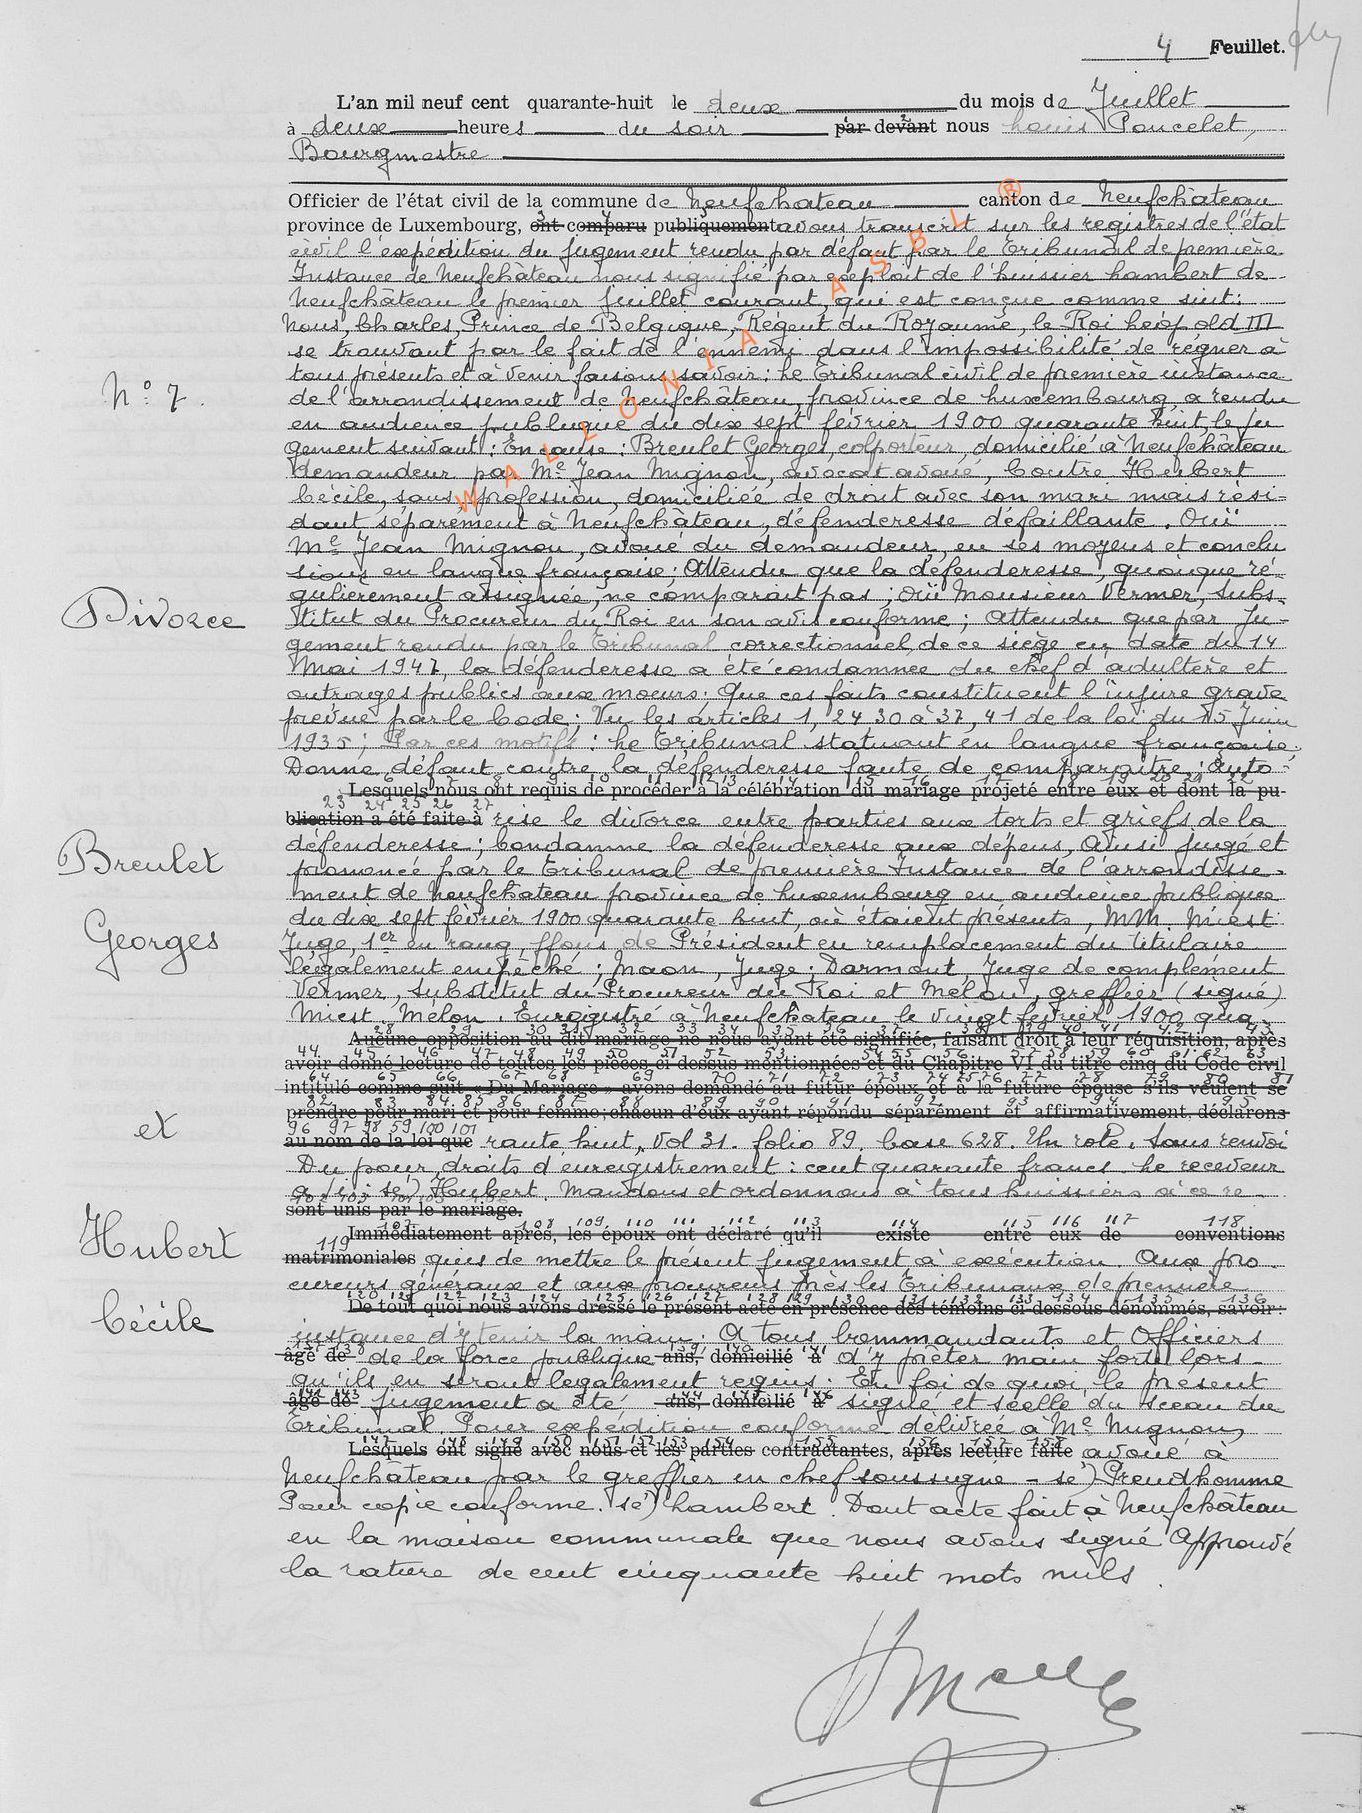 4 Feuillet.
L'an mil neuf cent quarante-huit le deux du mois de Juillet
à deux heures du soir par devant nous Louis Poncelet,
Bourgmestre
Officier de l'état civil de la commune de Neufchâteau canton de Neufchâteau
province de Luxembourg, ont comparu publiquement avons transcrit sur les registres de l'état
civil l'expédition du Jugement rendu par défaut par le Tribunal de première
Instance de Neufchâteau nous signifié par exploit de l'huissier Lambert de
Neufchâteau le premier Juillet courant, qui est conçue comme suit:
Nous, Charles, Prince de Belgique, Régent du Royaume, le Roi Léopold III
se trouvant par le fait de l'ennemi dans l'impossibilité de régner à
tous présents et à venir faisons savoir: Le Tribunal civil de première instance
N° 7.
de l'arrondissement de Neufchâteau, province de Luxembourg, a rendu
en audience publique du dix sept février 1900 quarante huit, le Ju
gement suivant: En cause: Breulet Georges, colporteur, domicilié à Neufchâteau
demandeur, par Me Jean Mignon, avocat avoué, Contre Hubert
Cécile, sans profession, domiciliée de droit avec son mari mais rési-
dant séparement à Neufchâteau, défenderesse défaillante. Ouï
Me Jean Mignon, avoué du demandeur, en ses moyens et conclu
sions en langue française; Attendu que la défenderesse, quoique ré-
gulierement assignée, ne comparait pas; ouï Monsieur Vermer, Subs-
Divorce
titut du Procureur du Roi en son avis conforme; Attendu que par Ju-
gement rendu par le Tribunal correctionnel de ce siège en date du 14
Mai 1947, la défenderesse a été condamnée du chef d'adultère et
outrages publics aux moeurs; Que ces faits constituent l'injure grave
prévue par le Code; Vu les articles 1, 24 30 à 37, 41 de la loi du 15 Juin
1935; Par ces motifs: Le Tribunal statuant en langue française.
Donne défaut contre la défenderesse faute de comparaître; Auto-
Lesquels nous ont requis de procéder à la célébration du mariage projeté entre eux et dont la pu-
blication a été faite à rise le divorce entre parties aux torts et griefs de la
défenderesse; Condamne la défenderesse aux dépens, Ainsi jugé et
Breulet
prononcé par le Tribunal de première Instance de l'arrondisse-
ment de Neufchâteau province de Luxembourg en audience publique
du dix sept février 1900 quarante huit, où étaient présents, MM. Miest
Georges
Juge, 1er en rang, ffons de Président en remplacement du titulaire
légalement empêché; Maon, Juge; Darmont, Juge de complément
Vermer, Substitut du Procureur du Roi et Mélon, greffier (signé)
Miest, Mélon. Enregistré à Neufchâteau le vingt février 1900 qua-
Aucune opposition au dit mariage ne nous ayant été signifiée, faisant droit à leur réquisition, après
avoir donné lecture de toutes les pièces ci dessus mentionnées et du Chapitre VI du titre cinq du Code civil
intitulé comme suit « Du Mariage » avons demandé au futur époux et à la future épouse s'ils veulent se
prendre pour mari et pour femme; chacun d'eux ayant répondu séparément et affirmativement, déclarons
et
au nom de la loi que rante huit, Vol 31. folio 89, case 628. Un role, Sans renvoi
Du pour droits d'enregistrement: cent quarante francs. Le receveur
a i (sé) Hubert. Mandons et ordonnons à tous huissiers à ce re-
sont unis par le mariage.
Immédiatement après, les époux ont déclaré qu'il existe entre eux de conventions
Hubert
matrimoniales quis de mettre le présent jugement à exécution. Aux pro-
cureurs généraux et aux procureurs près les Tribunaux de première
De tout quoi nous avons dressé le présent acte en présence des témoins ci dessous dénommés, savoir:
Cécile
instance d'y tenir la main. A tous Commandants et Officiers
âgé de de la force publique ans, domicilié à d'y prêter main forte lors-
qu'ils en seront legalement requis. En foi de quoi, le présent
âgé de Jugement a été ans, domicilié à signé et scellé du sceau du
Tribunal Pour expédition conforme délivrée à Me Mignon,
Lesquels ont signé avec nous et les parties contractantes, après lecture faite avoué à
Neufchâteau par le greffier en chef soussigné - sé) Preudhomme
Pour copie conforme. sé) Lambert. Dont acte fait à Neufchâteau
en la maison communale que nous avons signé Approuvé
la rature de cent cinquante huit mots nuls.
WALLONIA ASBL ®